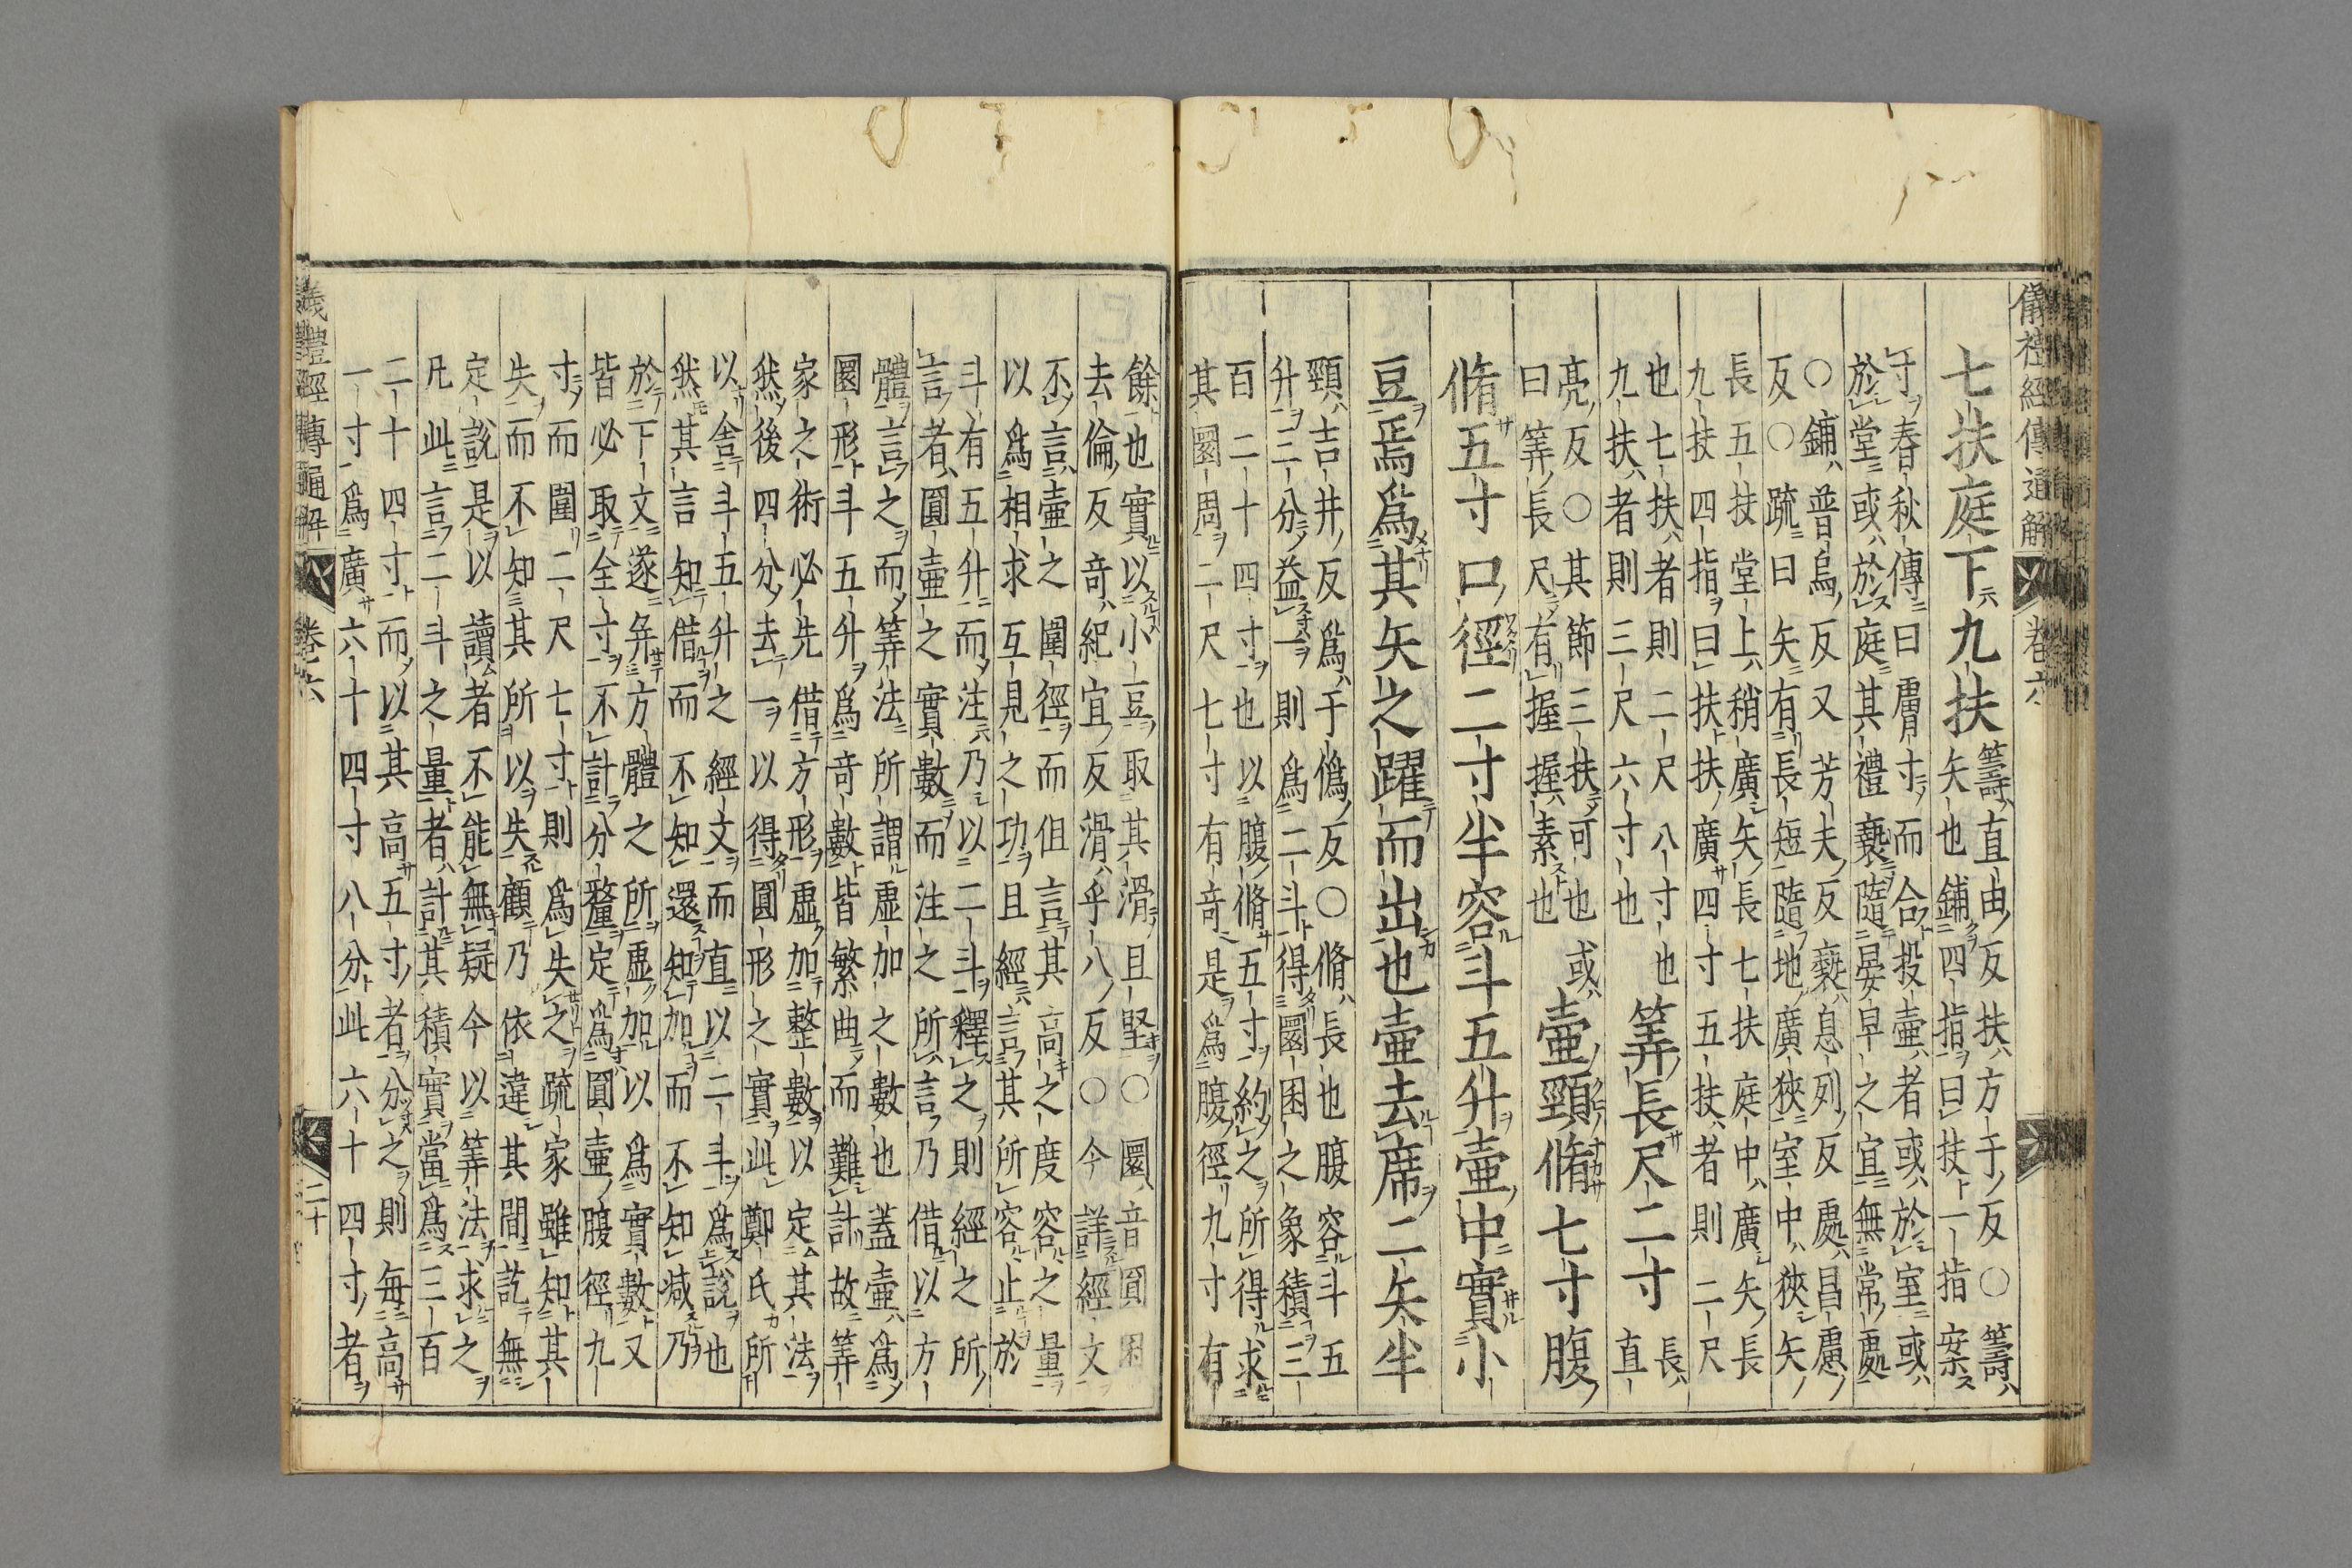 儀禮經傳通解 卷六
七扶庭下九扶
籌直由反扶方于反○籌
矢也鋪四指曰扶一指案
寸春秋傳曰膚寸而合投壺者或於室或
於堂或於庭其禮褻隨晏早之宜無常處
○鋪普烏反又芳夫反褻息列反處昌慮
反○疏曰矢有長短隨地廣狹室中狹矢
長五扶堂上稍廣矢長七扶庭中廣矢長
九扶四指曰扶扶廣四寸五扶者則二尺
也七扶者則二尺八寸也
九扶者則三尺六寸也
筭長尺二寸
長
直
亮反○其節三扶可也或
曰筭長尺有握握素也
壺頸脩七寸腹
脩五寸口徑二寸半容斗五升壺中實小
豆焉爲其矢之躍而出也壺去席二矢半
頸吉井反爲于僞反○脩長也腹容斗五
升三分益一則爲二斗得圜囷之象積三
百二十四寸也以腹脩五寸約之所得求
其圜周二尺七寸有奇是爲腹徑九寸有
餘也實以小豆取其滑且堅○圜音圓囷
去倫反奇紀宜反滑乎八反○今詳經文
不言壺之圍徑而但言其高之度容之量
以爲相求互見之功且經言其所容止於
斗有五升而注乃以二斗釋之則經之所
言者圓壺之實數而注之所言乃借以方
體言之而筭法所謂虛加之數也蓋壺爲
圜形斗五升爲奇數皆繁曲而難計故筭
家之術必先借方形虛加整數以定其法
然後四分去一以得圓形之實此鄭氏所
以舍斗五升之經文而直以二斗爲說也
然其言知借而不知還知加而不知减乃
於下文遂幷方體之所虛加以爲實數又
皆必取全寸不計分釐定爲圓壺腹徑九
寸而圍二尺七寸則爲失之疏家雖知其
失而不知其所以失顧乃依違其間訖無
定說是以讀者不能無疑今以筭法求之
凡此言二斗之量者計其積實當爲三百
二十四寸而以其高五寸者分之則每高
一寸爲廣六十四寸八分此六十四寸者
儀禮經傳通解 卷六 二十